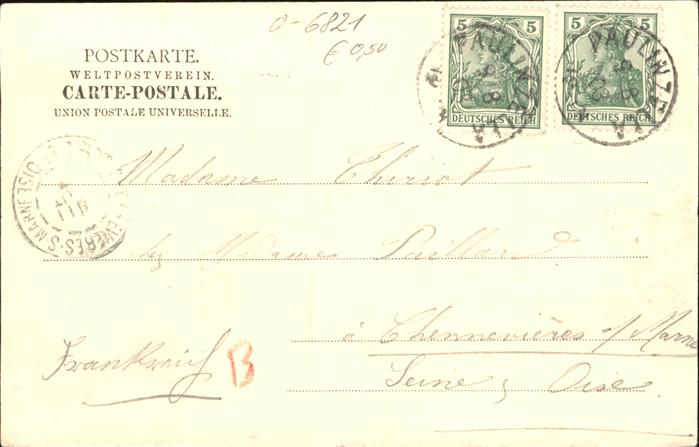 0-6821
€ 0,50
POSTKARTE.
WELTPOSTVEREIN.
CARTE-POSTALE.
UNION POSTALE UNIVERSELLE.
5 5
DEUTSCHES REICH
5 5
DEUTSCHES REICH
PAULINZELLA
PAULINZELLA
Madame Thiriot
chez Madame Paillard
à Chennevières s/ Marne
Seine & Oise
Frankreich
B